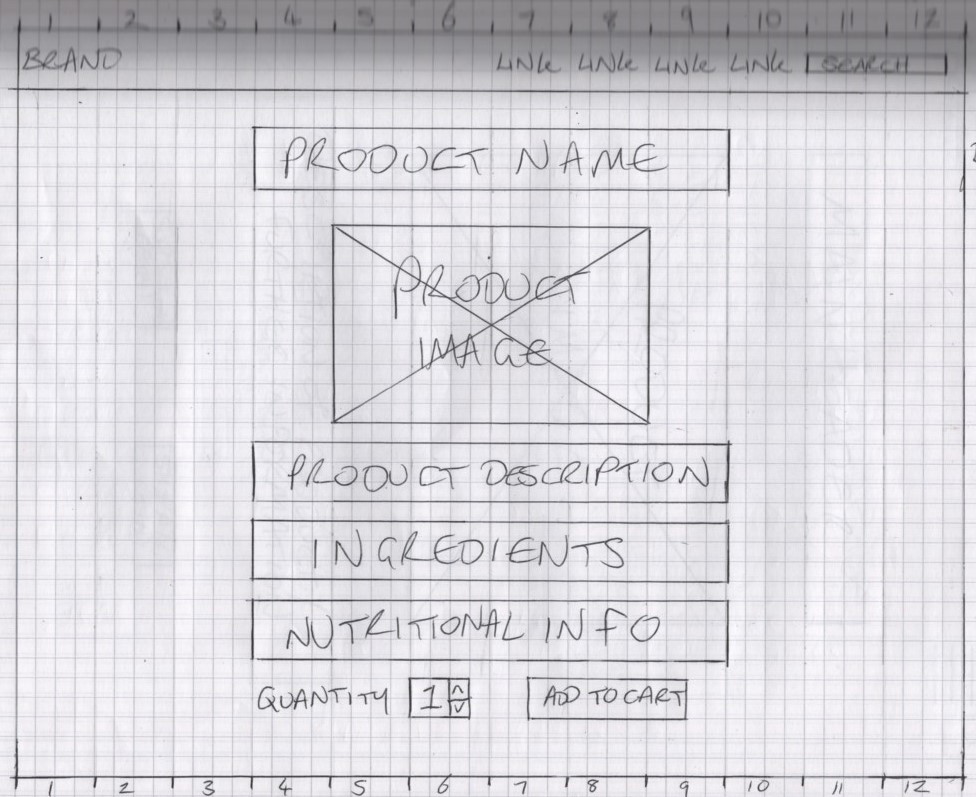 1 2 3 4 5 6 7 8 9 10 11 12
BRAND LINK LINK LINK LINK SEARCH
PRODUCT NAME
PRODUCT
IMAGE
PRODUCT DESCRIPTION
INGREDIENTS
NUTRITIONAL INFO
QUANTITY 1 ADD TO CART
1 2 3 4 5 6 7 8 9 10 11 12